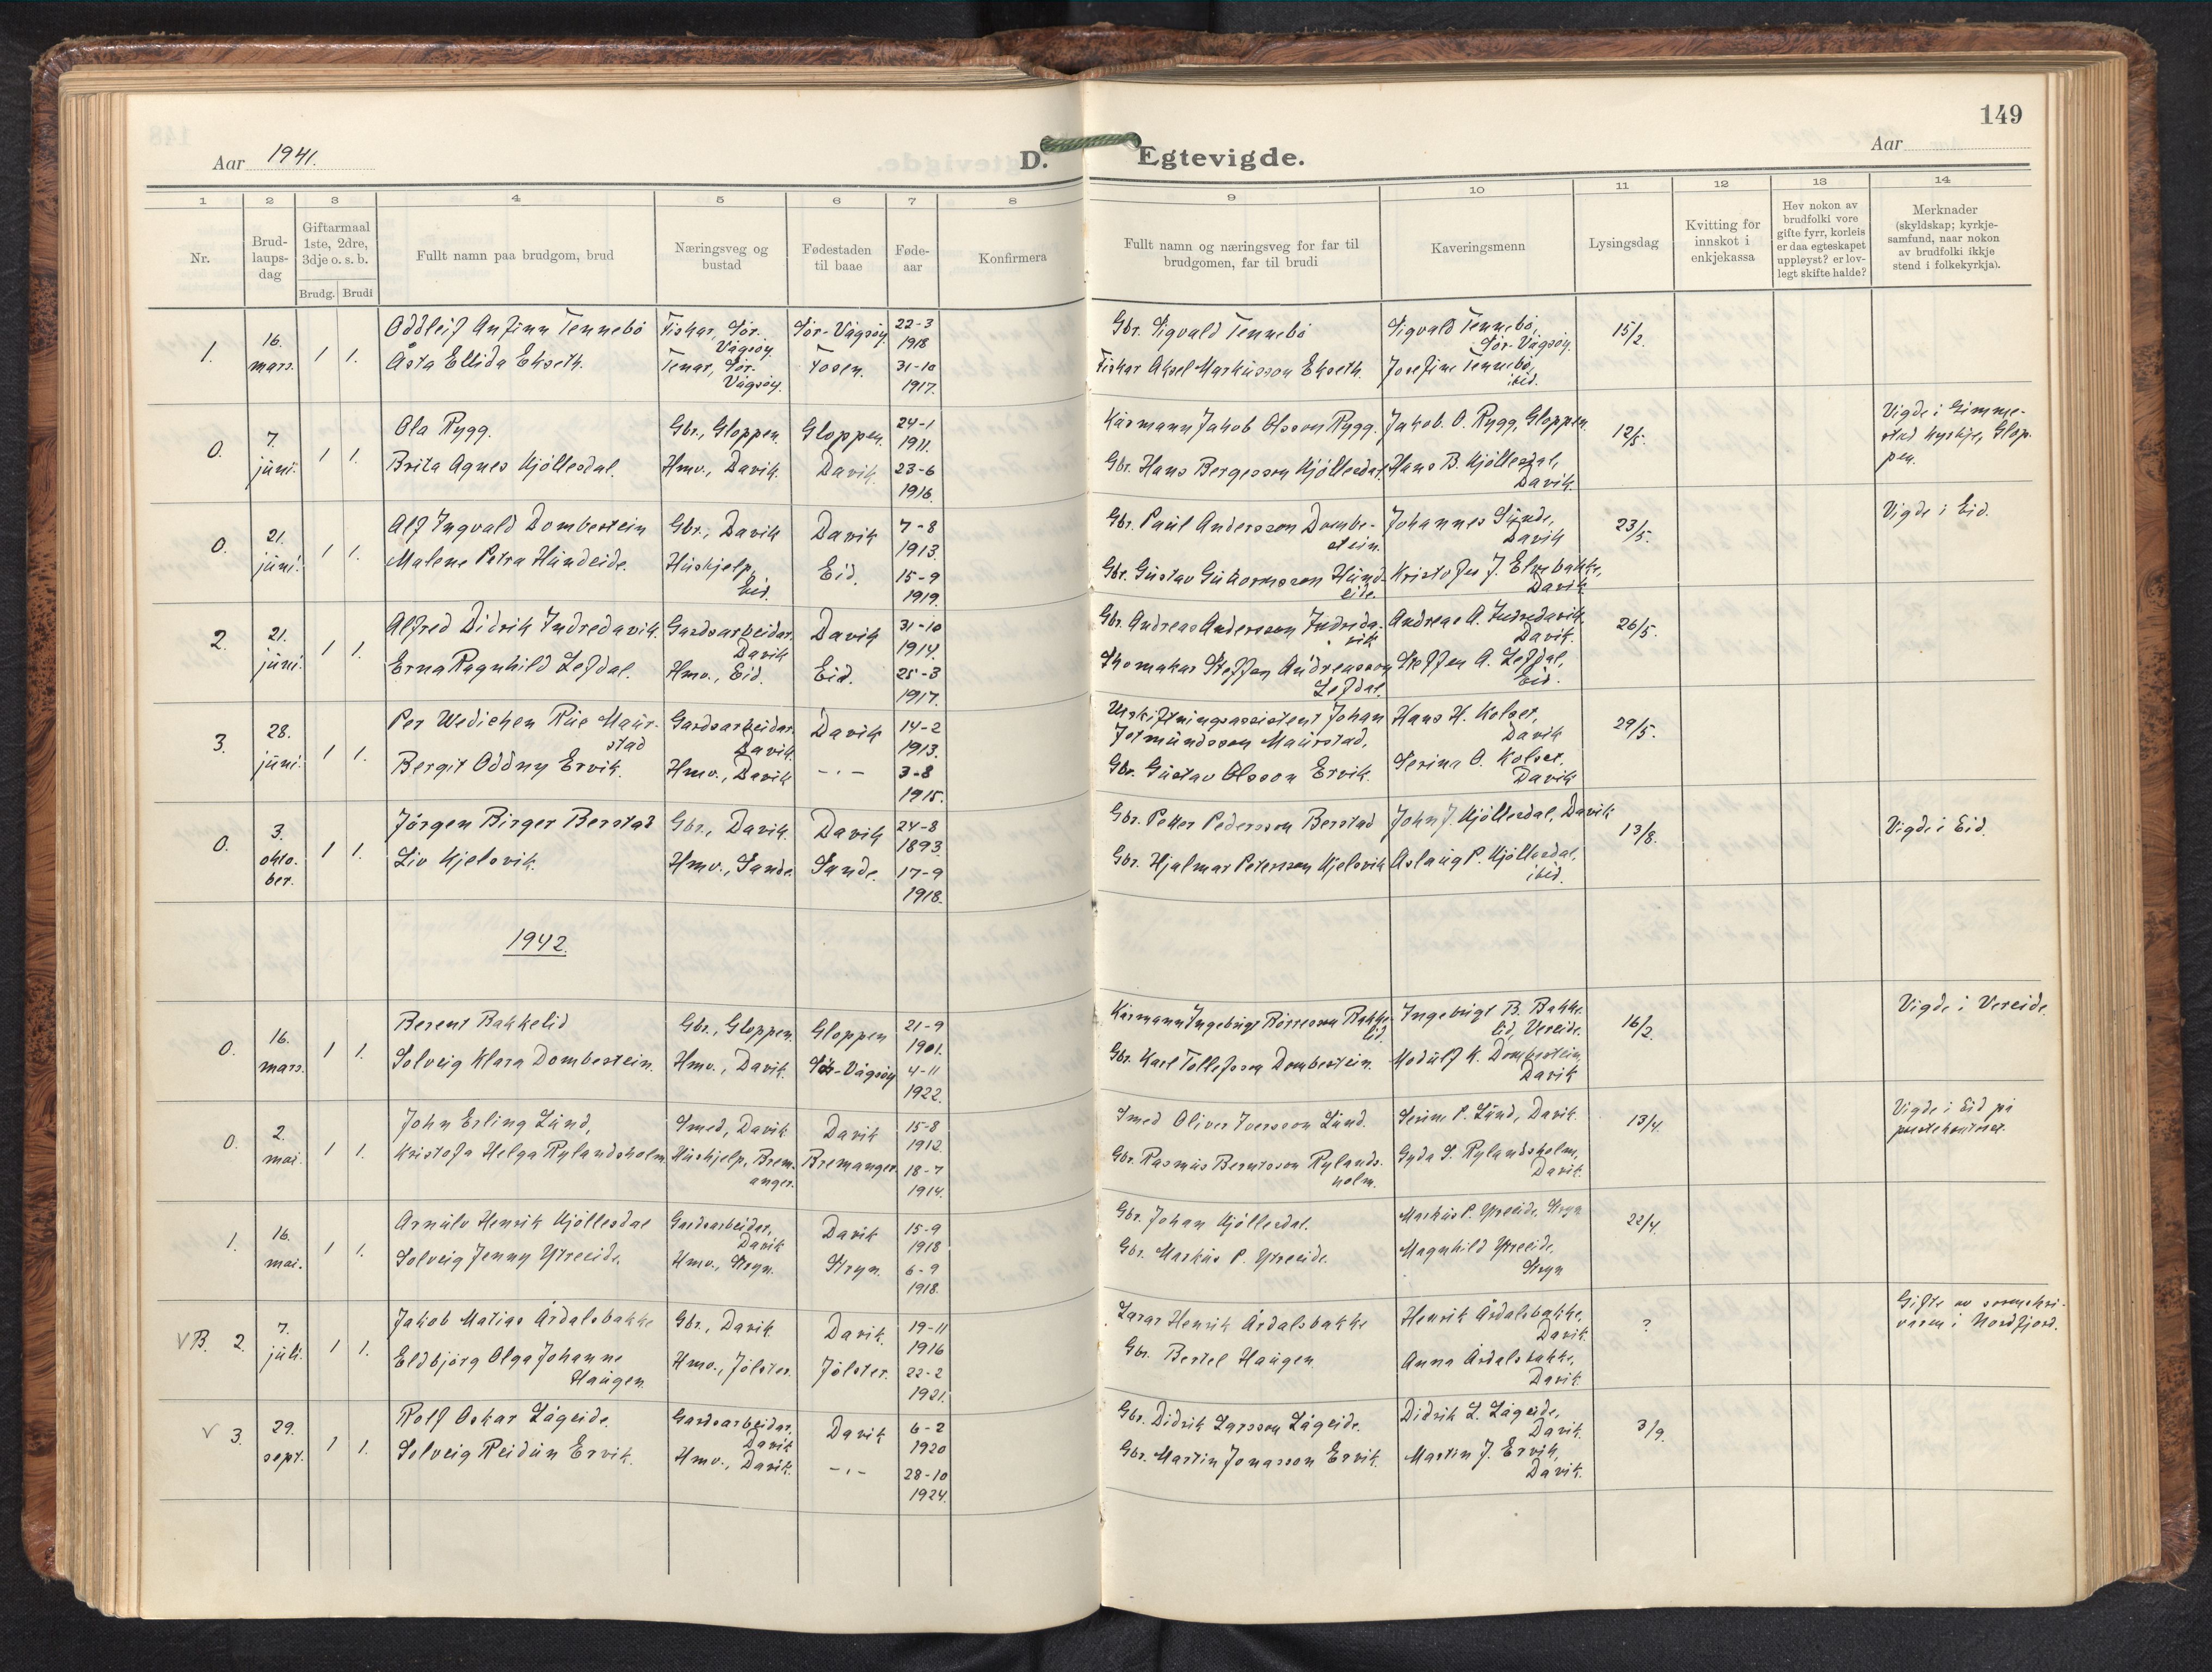 149
Aar 1941.
D. Egtevigde.
Aar
1 2 3 4 5 6 7 8 9 10 11 12 13 14
Nr.
Brud-
laups-
dag
Giftarmaal
1ste, 2dre,
3dje o. s. b.
Brudg. Brudi
Fullt namn paa brudgom, brud
Næringsveg og
bustad
Fødestaden
til baae
Føde-
aar
Konfirmera
Fullt namn og næringsveg for far til
brudgomen, far til brudi
Kaveringsmenn
Lysingsdag
Kvitting for
innskot i
enkjekassa
Hev nokon av
brudfolki vore
gifte fyrr, korleis
er daa egteskapet
uppløyst? er lov-
legt skifte halde?
Merknader
(skyldskap; kyrkje-
samfund, naar nokon
av brudfolki ikkje
stend i folkekyrkja).
1.
16.
mars.
1 1.
Oddleif Anfinn Tennebö
Åsta Ellida Ekseth.
Fiskar, Sör-
Vågsöy.
Tenar, Sör-
Vågsöy.
Sör-Vågsöy.
Fosen.
22-3
1918
31-10
1917.
Gbr. Sigvald Tennebö
Fiskar Aksel Markusson Ekseth.
Sigvald Tennebö,
Sör-Vågsöy.
Josefine Tennebö,
ibid.
15/2.
0.
7.
juni.
1 1.
Ola Rygg.
Brita Agnes Kjöllesdal.
Gbr., Gloppen.
Hmv., Davik.
Gloppen.
Davik.
24-1
1911.
23-6
1916.
Kårmann Jakob Olsson Rygg.
Gbr. Hans Bergesson Kjöllesdal.
Jakob. O. Rygg, Gloppen.
Hans B. Kjöllesdal,
Davik.
12/5.
Vigde i Gimme-
stad kyrkje, Glop-
pen.
0.
21.
juni.
1 1.
Alf Ingvald Dombestein
Malene Petra Hundeide.
Gbr., Davik
Huskjelp,
Eid.
Davik
Eid.
7-8
1913.
15-9
1919.
Gbr. Paul Andersson Dombe-
stein.
Gbr. Gustav Guttormsson Hund-
eide.
Johannes Sunde,
Davik
Kristofer J. Elvebakke,
Davik.
23/5.
Vigde i Eid.
2.
21.
juni.
1 1.
Alfred Didrik Indredavik.
Erna Ragnhild Lefdal.
Gardsarbeidar.
Davik
Hmv., Eid.
Davik
Eid.
31-10
1914.
25-3
1917.
Gbr. Andreas Andersson Indreda-
vik
Skomakar Steffen Andreasson
Lefdal.
Andreas A. Indredavik,
Davik.
Steffen A. Lefdal,
Eid.
26/5.
3.
28.
juni.
1 1.
Per Wedichen Rüe Maur-
stad
Bergit Oddny Ervik.
Gardsarbeidar.
Davik.
Hmv., Davik
Davik
-"-
14-2
1913.
3-8
1915.
Utskiftningsassistent Johan
Jetmundsson Maurstad.
Gbr. Gustav Olsson Ervik.
Hans H. Kolset,
Davik
Serina O. Kolset,
Davik
29/5.
0.
3.
okto-
ber.
1 1.
Jörgen Birger Berstad
Liv Kjelsvik.
Gbr., Davik.
Hmv., Sande.
Davik
Sande.
24-8
1893.
17-9
1918.
Gbr. Petter Pedersson Berstad
Gbr. Hjalmar Petersson Kjelsvik
John J. Kjöllesdal, Davik
Aslaug P. Kjöllesdal,
ibid.
13/8.
Vigde i Eid.
1942.
0.
16.
mars.
1 1.
Berent Bakkelid
Solveig Klara Dombestein.
Gbr., Gloppen.
Hmv., Davik.
Gloppen
Sör-Vågsöy
21-9
1901.
4-11
1922.
Kårmann Ingebrigt Börresson Bakke-
lid.
Gbr. Karl Tollefsson Dombestein.
Ingebrigt B. Bakke-
lid, Vereide.
Modulf K. Dombestein
Davik
16/2.
Vigde i Vereide.
0.
2.
mai.
1 1.
John Erling Lund,
Kristofa Helga Rylandsholm.
Smed, Davik
Huskjelp, Brem-
anger.
Davik
Bremanger.
15-8
1912.
18-7
1914.
Smed Oliver Iversson Lund.
Gbr. Rasmus Berntsson Rylands-
holm.
Serine P. Lund, Davik.
Gyda S. Rylandsholm,
Davik.
13/4.
Vigde i Eid på
prestekontoret.
1.
16.
mai.
1 1.
Arnulv Henrik Kjöllesdal
Solveig Jenny Ytreeide.
Gardsarbeidar,
Davik
Hmv., Stryn.
Davik
Stryn.
15-9
1918
6-9
1918.
Gbr. Johan Kjöllesdal.
Gbr. Markus P. Ytreeide.
Markus P. Ytreeide, Stryn
Magnhild Ytreeide,
Stryn
22/4.
VB. 2.
7.
juli.
1 1.
Jakob Matias Årdalsbakke
Eldbjörg Olga Johanne
Haugen.
Gbr., Davik
Hmv., Jölster.
Davik.
Jölster.
19-11
1916
22-2
1921.
Lærar Henrik Årdalsbakke
Gbr. Bertel Haugen
Henrik Årdalsbakke,
Davik.
Anna Årdalsbakke,
Davik.
?
Gifte av sorenskri-
varen i Nordfjord.
V 3.
29.
sept.
1 1.
Rolf Oskar Lågeide.
Solveig Reidun Ervik.
Gardsarbeidar,
Davik
Hmv., Davik.
Davik
-"-
6-2
1920
28-10
1924.
Gbr. Didrik Larsson Lågeide.
Gbr. Martin Jonasson Ervik.
Didrik L. Lågeide,
Davik.
Martin J. Ervik,
Davik.
3/9.